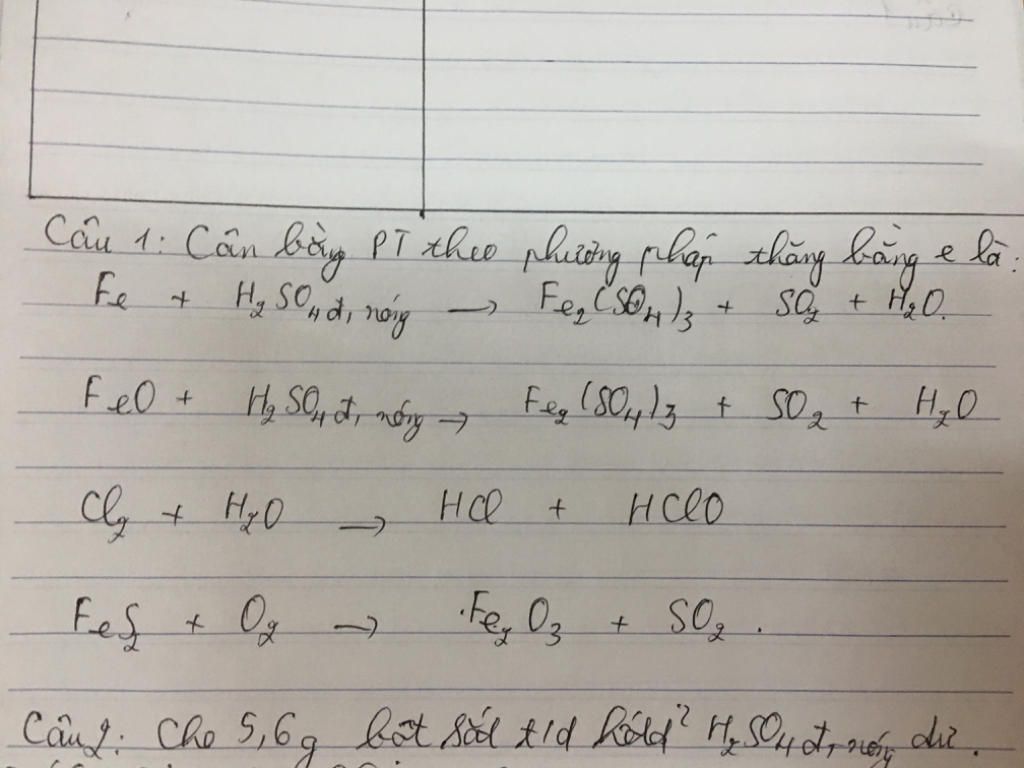 Câu 1: Cân bằng PT theo phương pháp thăng bằng e là:
Fe + H₂SO₄ đ, nóng → Fe₂(SO₄)₃ + SO₂ + H₂O.
FeO + H₂SO₄ đ, nóng → Fe₂(SO₄)₃ + SO₂ + H₂O
Cl₂ + H₂O → HCl + HClO
FeS₂ + O₂ → Fe₂O₃ + SO₂.
Câu 2: Cho 5,6g bột sắt t/d hết dd² H₂SO₄ đ, nóng dư.